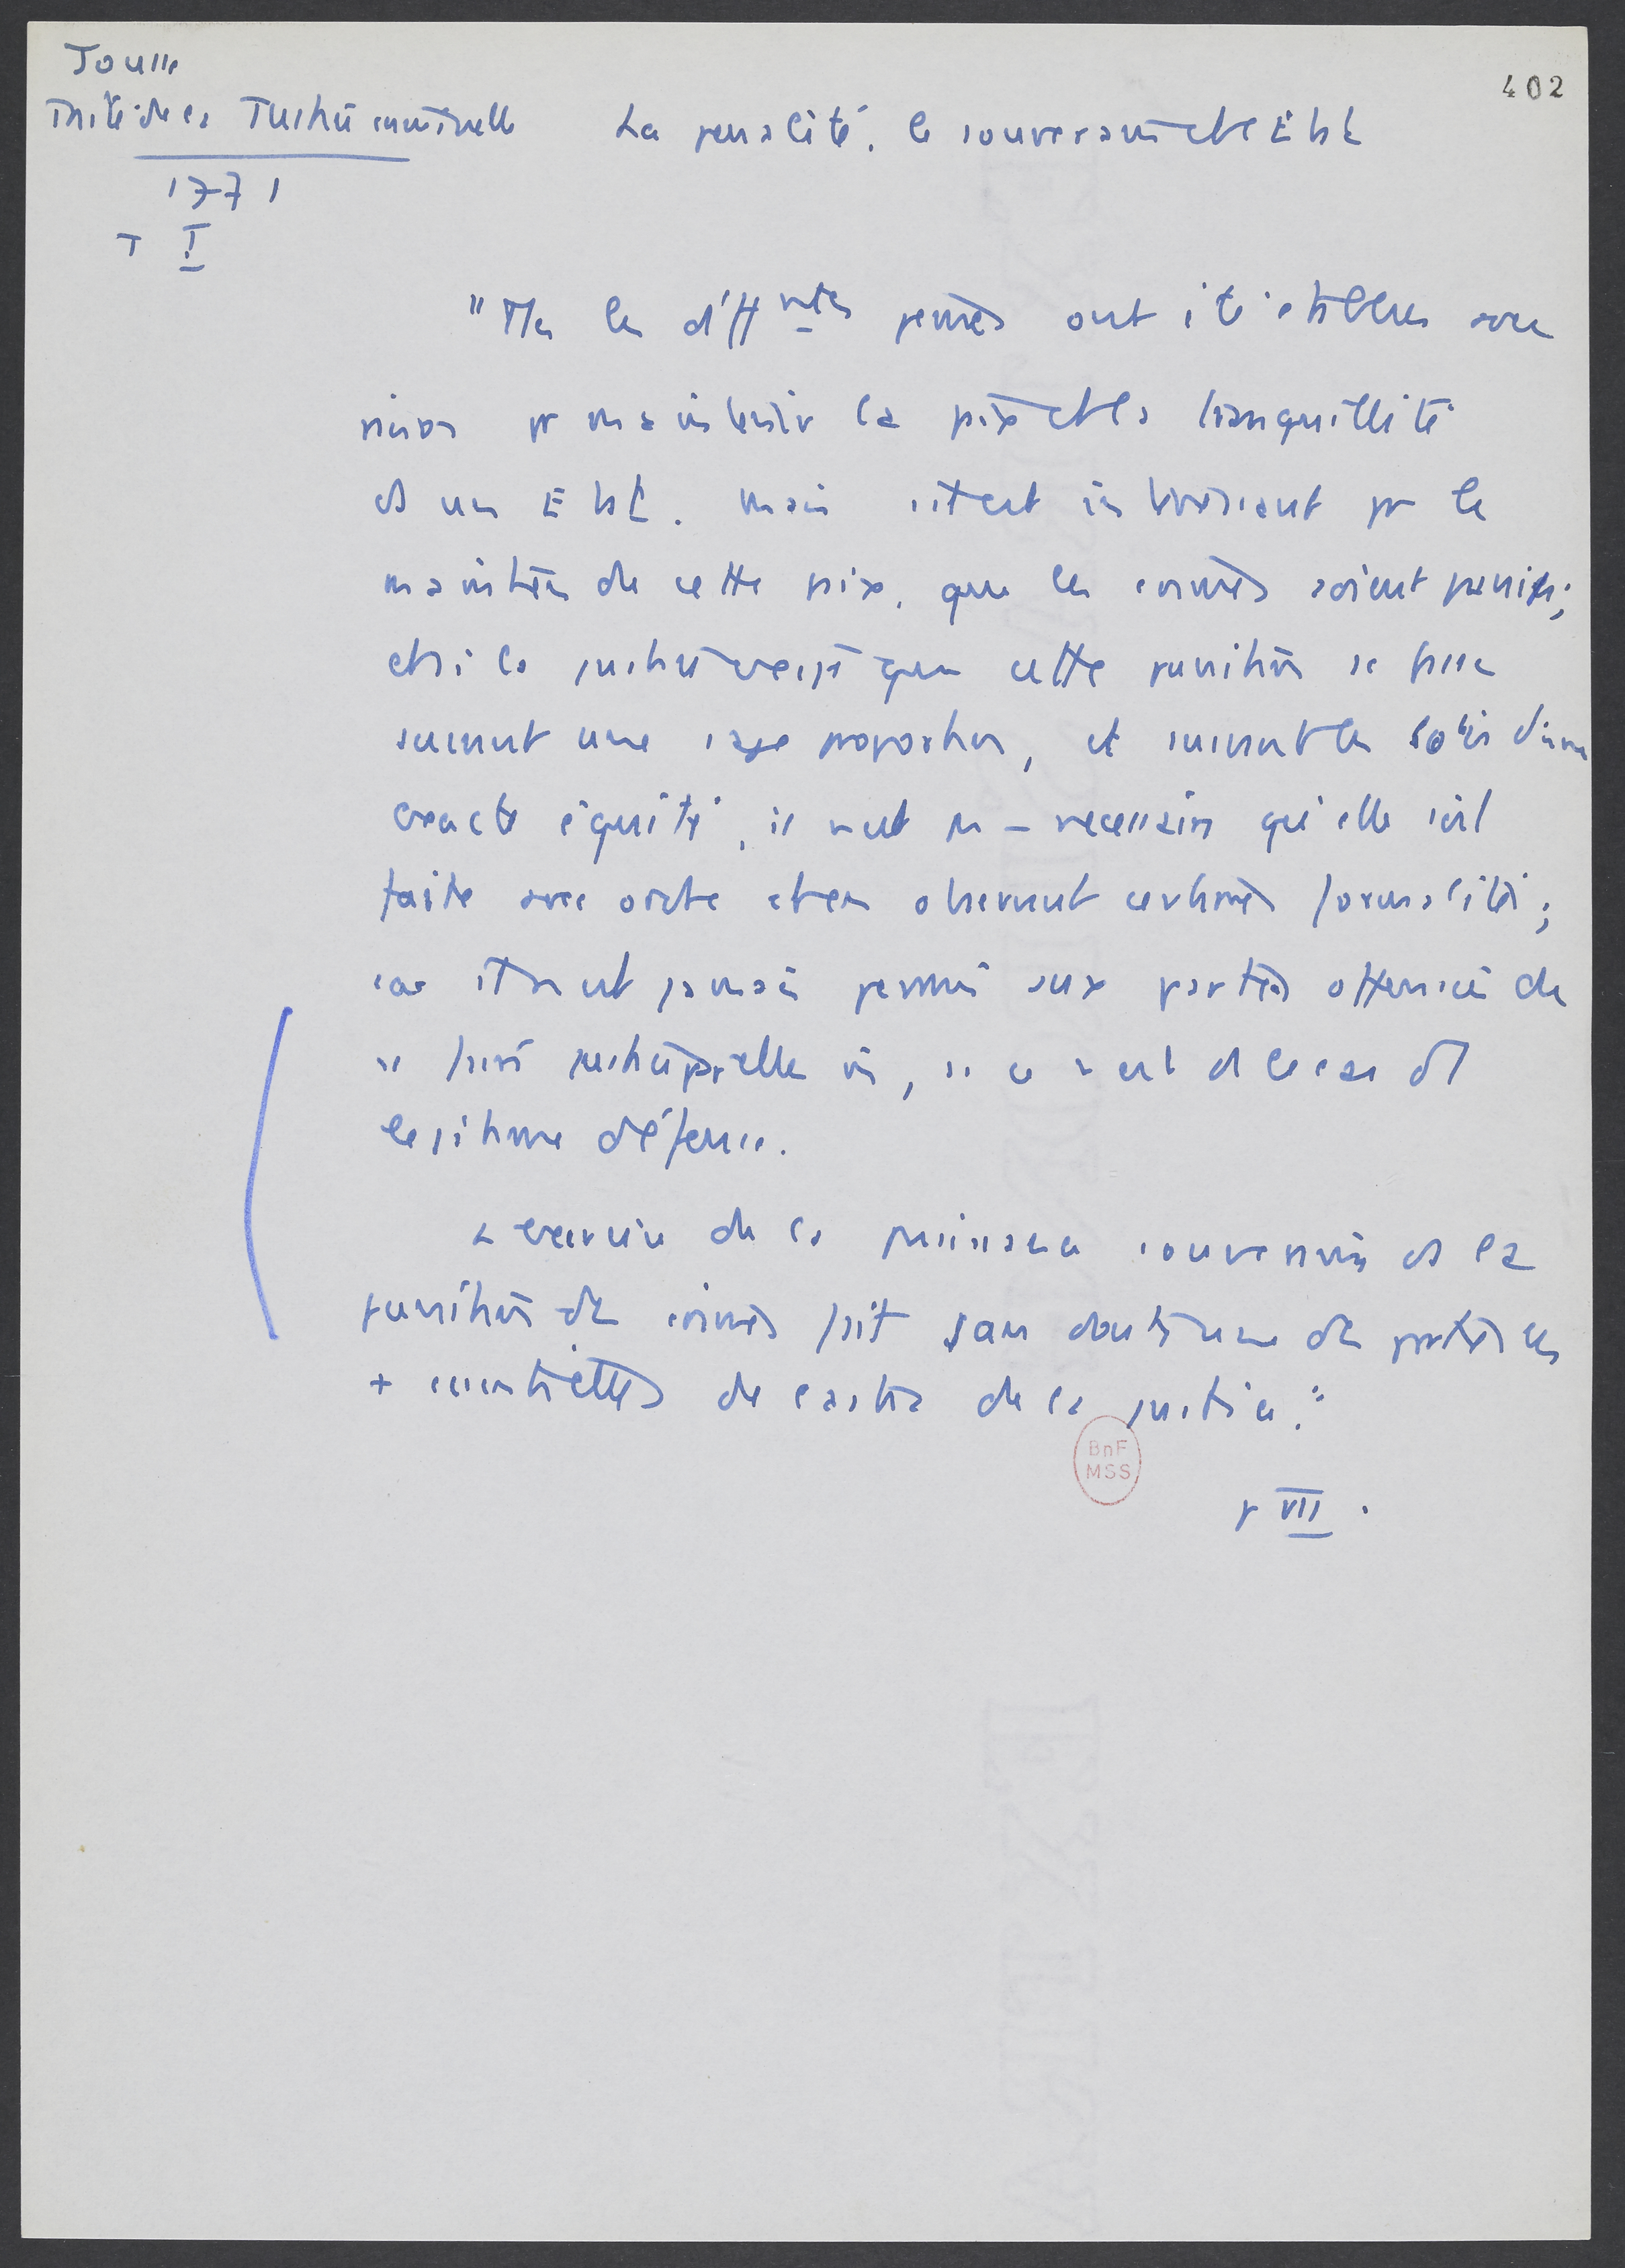 Jousse
402
Traité de la Justice criminelle La pénalité, le souverain et l'Etat
1771
T I
"Ttes les diff ntes peines ont été établies avec
raison pr maintenir la paix et la tranquillité
ds un Etat. Mais s'il est intéressant pr le
maintien de cette paix, que les crimes soient punis;
et si la justice veut que cette punition se fasse
suivant une sage proportion, et suivant les lois d'une
exacte équité, il n'est pas – nécessaire qu'elle soit
faite avec ordre et en observant certaines formalités;
car il n'est jamais permis aux parties offensées de
se faire justice par elles-m, si ce n'est ds le cas de
légitime défense.
L'exercice de la puissance souveraine ds la
punition des crimes fait sans doute une des parties les
+ essentielles de l'adm de la justice."
p VII.
BnF
MSS